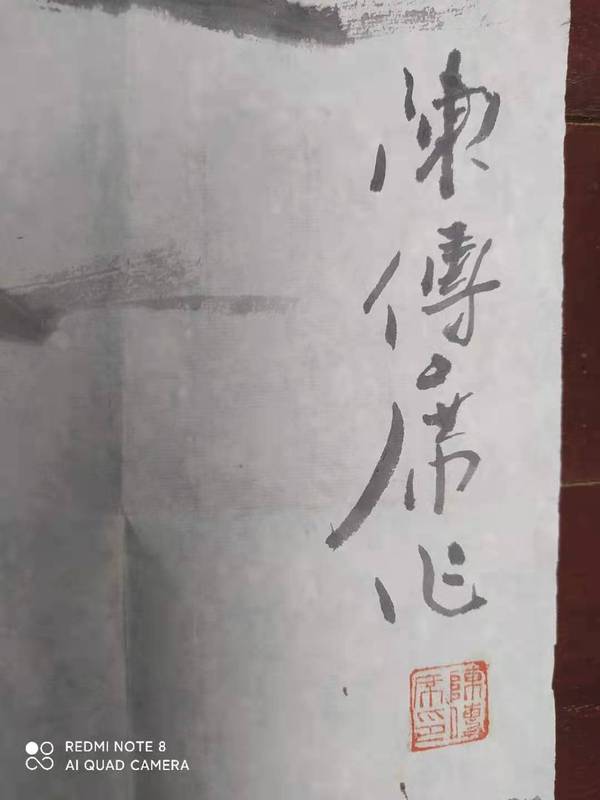 陳傳席作
陳傳席印
REDMI NOTE 8
AI QUAD CAMERA